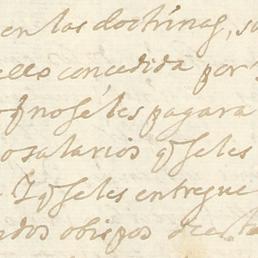 en las doctrinas, su
ello concedida por
q no se les pagara
o salarios q se les
Y q se les entregue
dos obispos de esta